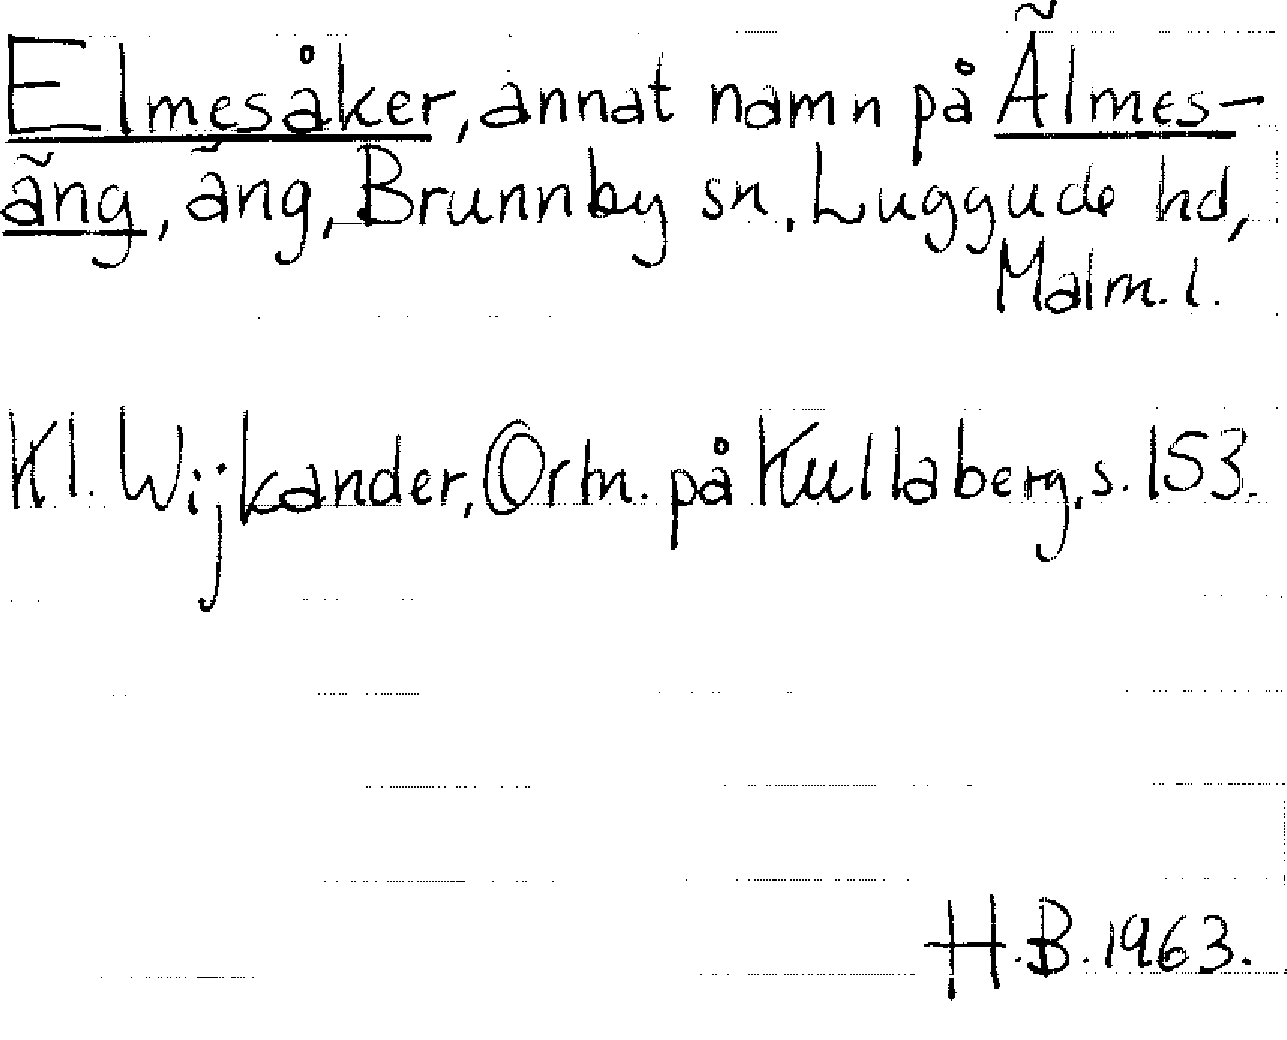 Elmesåker, annat namn på Älmes-
äng, äng, Brunnby sn, Luggude hd,
Malm. l.
Kl. Wijkander, Ortn. på Kullaberg, s. 153.
H.B. 1963.